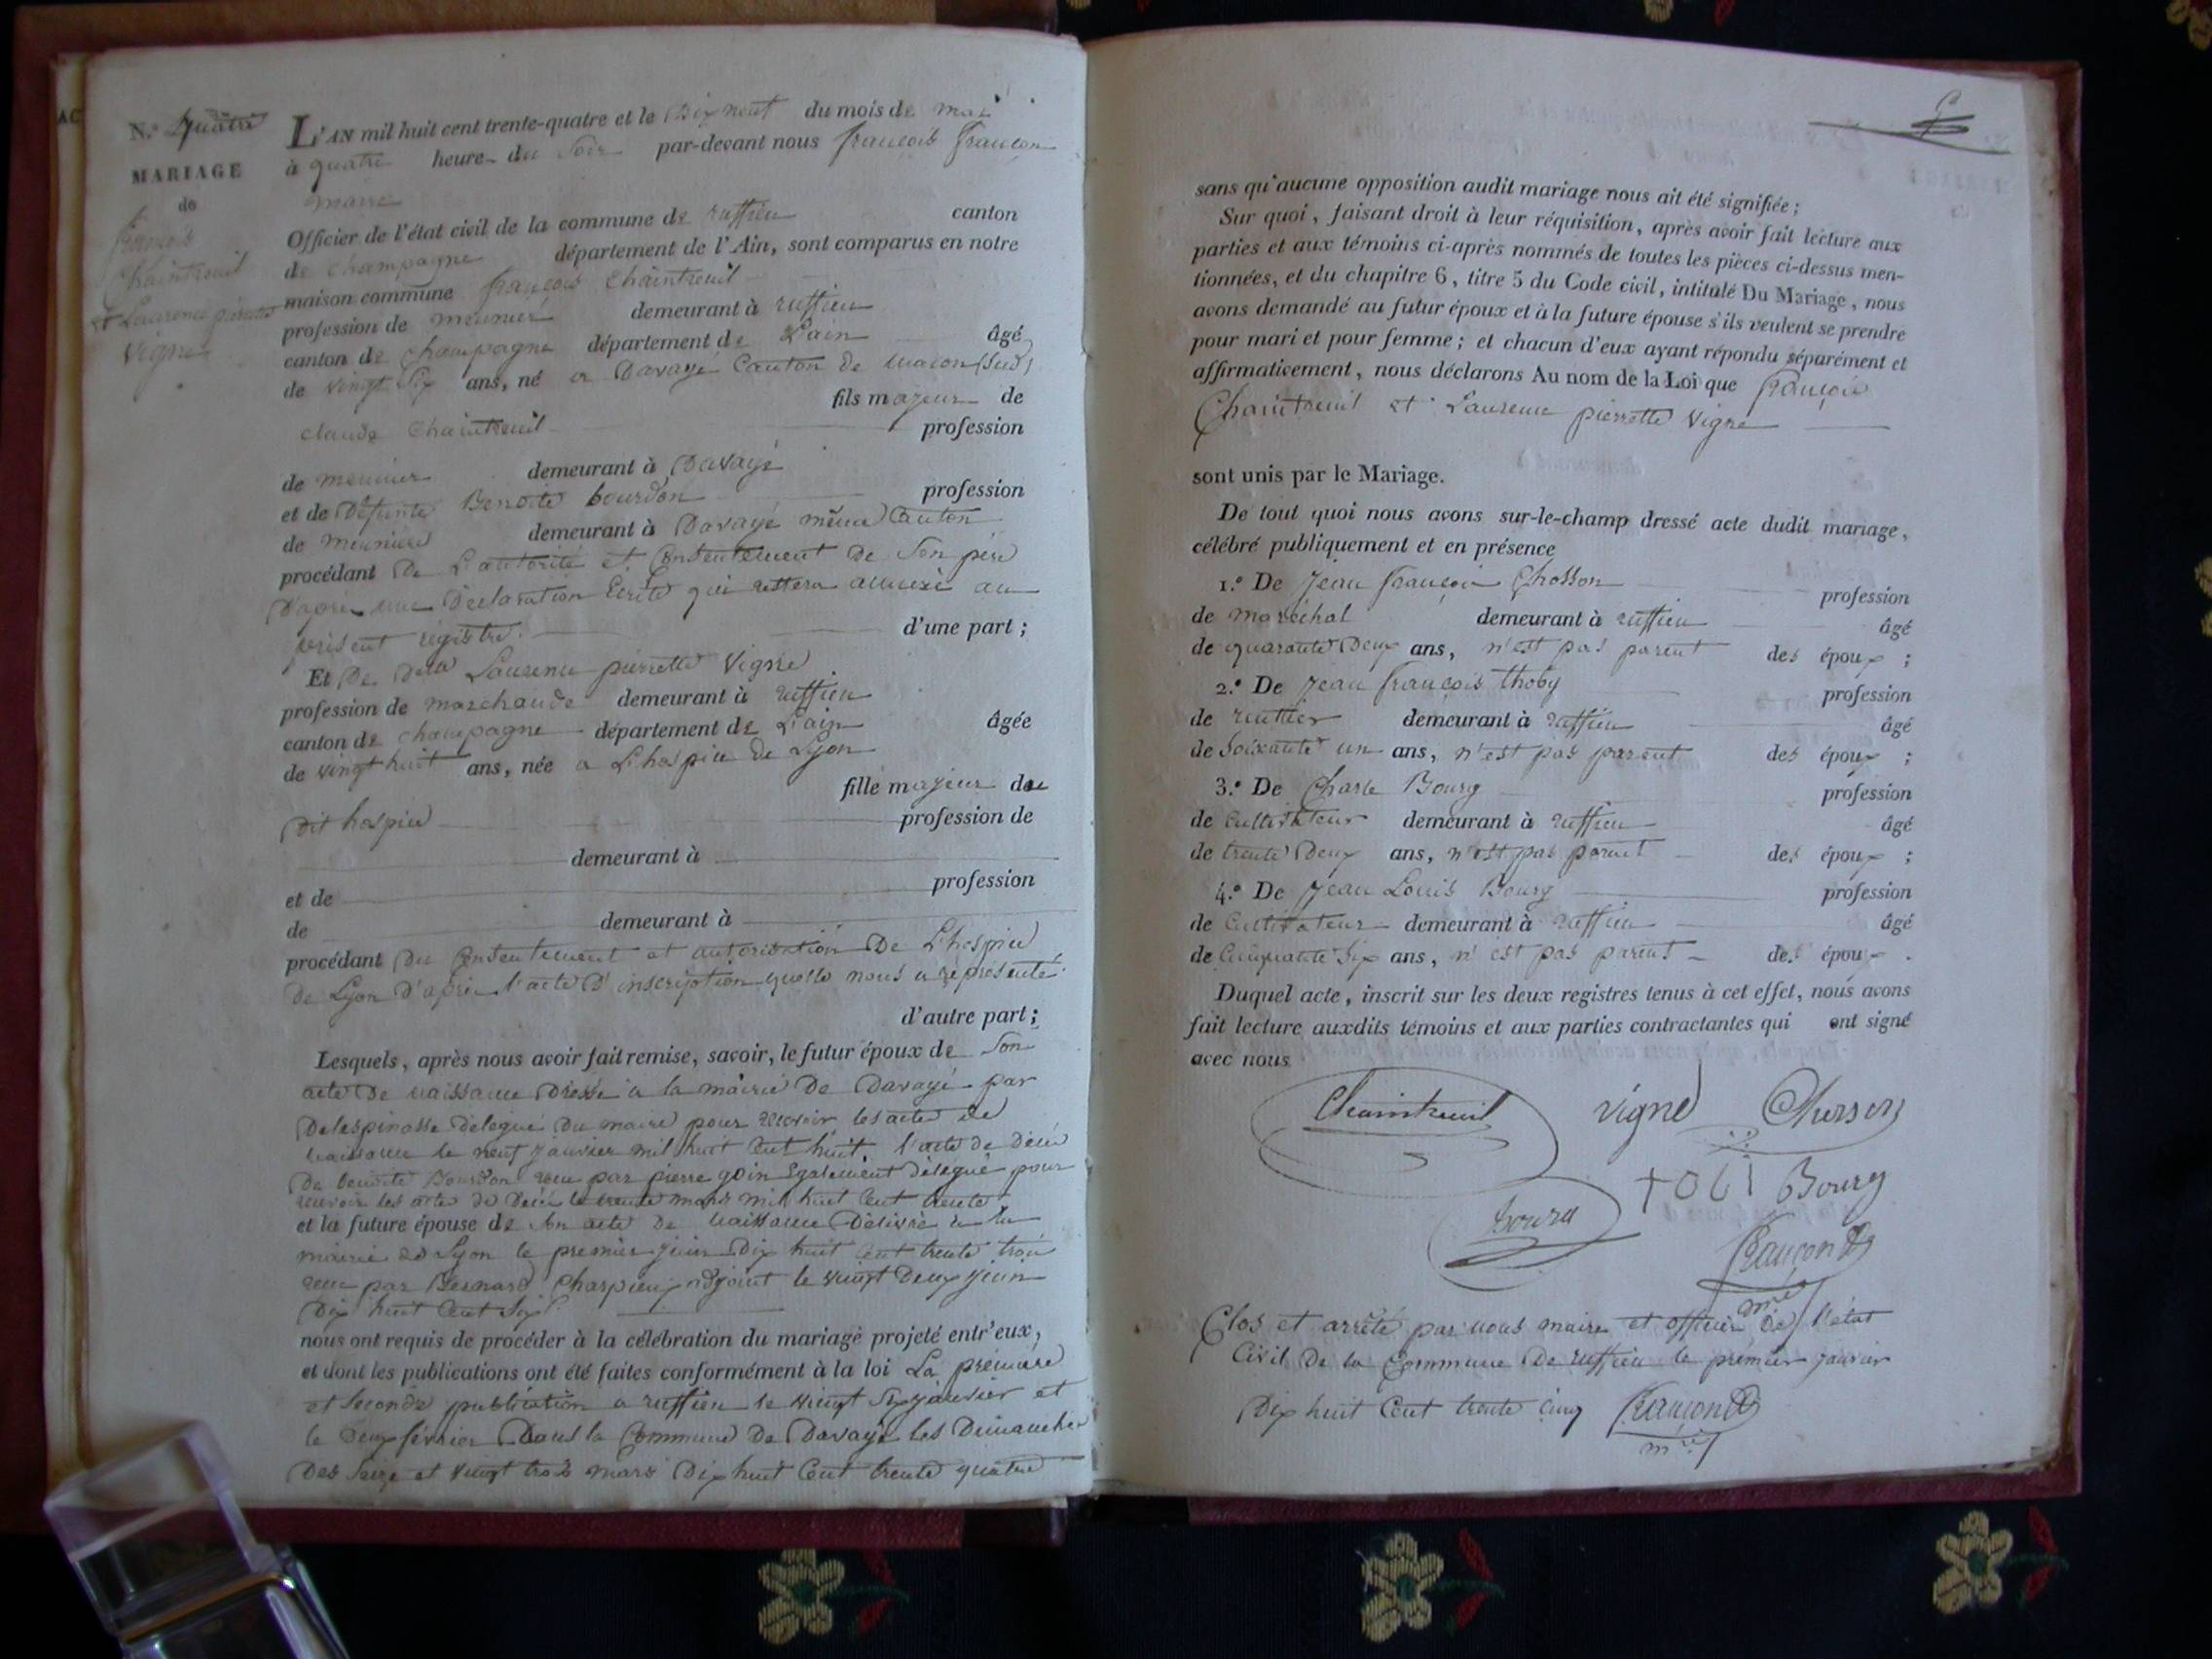 N.º quatre
MARIAGE
de
françois
Chaintreuil
et Laurence pierrette
Vigne
L'AN mil huit cent trente-quatre et le Dix neuf du mois de mai
à quatre heure du Soir par-devant nous françois françon
maire
Officier de l'état civil de la commune de ruffieu canton
de champagne département de l'Ain, sont comparus en notre
maison commune françois Chaintreuil
profession de meunier demeurant à ruffieu
canton de Champagne département de L'ain âgé
de vingt Six ans, né a Davayé Canton de macon (sud)
fils majeur de
claude Chaintreuil profession
de meunier demeurant à Davayé
et de Défunte Benoite bourdon profession
de meuniere demeurant à Davayé même Canton
procédant De L'autorité et Consentement de Son père
D'après une Déclaration Ecrite qui restera annexé au
présent régistre. d'une part ;
Et De Delle Laurence pierrette Vigne
profession de marchande demeurant à ruffieu
canton de champagne département de L'ain âgée
de vingt huit ans, née a L'hospice de Lyon
fille majeur du
Dit hospice profession de
demeurant à
et de profession
de demeurant à
procédant Du Consentement et autorisation De L'hospice
De Lyon D'après l'acte D'inscription quelle nous a représenté
d'autre part ;
Lesquels, après nous avoir fait remise, savoir, le futur époux de Son
acte De naissance Dressé a la mairie De Davayé par
Delespinasse Délégué Du maire pour recevoir les acte de
naissance le neuf janvier mil huit Cent huit. l'acte de Décès
De benoite Bourdon reçu par pierre goin Egalement délégué pour
recevoir les acte de Décès le trente mars mil huit Cent trente
et la future épouse de Son acte De naissance Délivré a la
mairie de Lyon le premier juin Dix huit Cent trente trois
reçu par Bernard Charpieux adjoint le vingt Deux juin
Dix huit Cent Six
nous ont requis de procéder à la célébration du mariage projeté entr'eux,
et dont les publications ont été faites conformément à la loi La première
et Seconde publication a ruffieu le vingt Six janvier et
le Deux février Dans la Commune De Davayé les Dimanche
Des Seize et vingt trois mars Dix huit Cent trente quatre
sans qu'aucune opposition audit mariage nous ait été signifiée ;
Sur quoi, faisant droit à leur réquisition, après avoir fait lecture aux
parties et aux témoins ci-après nommés de toutes les pièces ci-dessus men-
tionnées, et du chapitre 6, titre 5 du Code civil, intitulé Du Mariage, nous
avons demandé au futur époux et à la future épouse s'ils veulent se prendre
pour mari et pour femme ; et chacun d'eux ayant répondu séparément et
affirmativement, nous déclarons Au nom de la Loi que françois
Chaintreuil et Laurence pierrette Vigne
sont unis par le Mariage.
De tout quoi nous avons sur-le-champ dressé acte dudit mariage,
célébré publiquement et en présence
1.º De Jean françois Chosson profession
de maréchal demeurant à ruffieu âgé
de quarante Deux ans, n'est pas parent des époux ;
2.º De Jean françois thoby profession
de rentier demeurant à ruffieu âgé
de Soixante un ans, n'est pas parent des époux ;
3.º De Charle Bourg profession
de Cultivateur demeurant à ruffieu âgé
de trente Deux ans, n'est pas parent des époux ;
4.º De Jean Louis Bourg profession
de Cultivateur demeurant à ruffieu âgé
de Cinquante Six ans, n'est pas parent des époux .
Duquel acte, inscrit sur les deux registres tenus à cet effet, nous avons
fait lecture auxdits témoins et aux parties contractantes qui ont signé
avec nous
Chaintreuil vigne Chosson
Bourg
françon
mre
Clos et arrêté par nous maire et officier de l'état
Civil De la Commune De ruffieu le premier janvier
Dix huit Cent trente cinq françon
mre